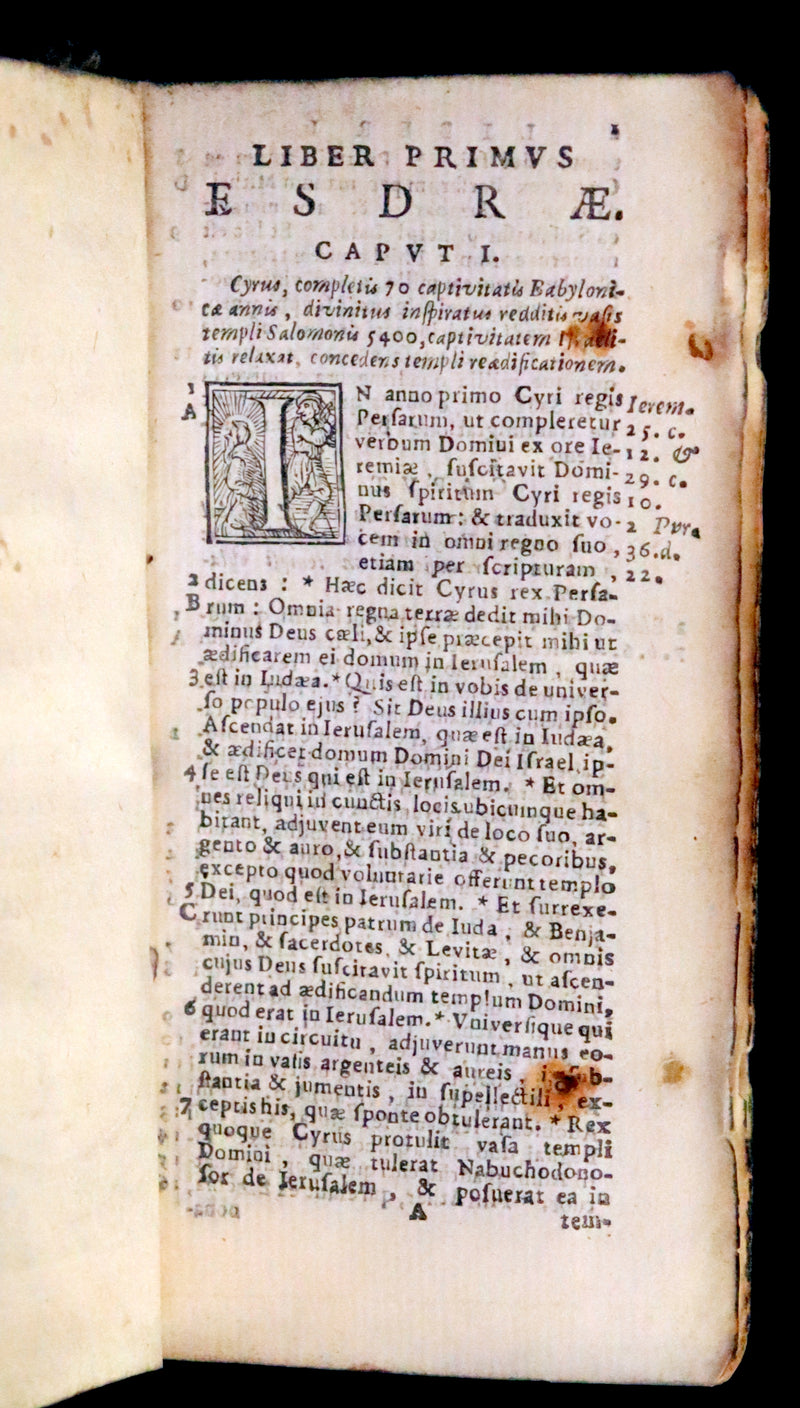 1
LIBER PRIMVS
ESDRÆ.
CAPVT I.
Cyrus, completis 70 captivitatis Babyloni-
cæ annis, divinitus inſpiratus redditis vaſis
templi Salomonis 5400, captivitatem
tis relaxat, concedens templi reædificationem.
1 IN anno primo Cyri regis Ierem.
A Perſarum, ut compleretur 25. c.
verbum Domini ex ore Ie- 12. &
remiæ, ſuſcitavit Domi- 29. c.
nus ſpiritum Cyri regis 10.
Perſarum: & traduxit vo- 2 Par.
cem in omni regno ſuo, 36. d.
etiam per ſcripturam, 22.
2 dicens: * Hæc dicit Cyrus rex Perſa-
B rum: Omnia regna terræ dedit mihi Do-
minus Deus cæli, & ipſe præcepit mihi ut
ædificarem ei domum in Ieruſalem, quæ
3 eſt in Iudæa. * Quis eſt in vobis de univer-
ſo populo ejus? Sit Deus illius cum ipſo.
Aſcendat in Ieruſalem, quæ eſt in Iudæa,
& ædificet domum Domini Dei Iſrael, ip-
4 ſe eſt Deus qui eſt in Ieruſalem. * Et om-
nes reliqui in cunctis locis ubicumque ha-
bitant, adjuvent eum viri de loco ſuo, ar-
gento & auro, & ſubſtantia & pecoribus,
excepto quod voluntarie offerunt templo
5 Dei, quod eſt in Ieruſalem. * Et ſurrexe-
C runt principes patrum de Iuda, & Benja-
min, & ſacerdotes, & Levitæ, & omnis
cujus Deus ſuſcitavit ſpiritum, ut aſcen-
derent ad ædificandum templum Domini,
6 quod erat in Ieruſalem. * Vniverſique qui
erant in circuitu, adjuverunt manus eo-
rum in vaſis argenteis & aureis,
ſtantia & jumentis, in ſupellectili, ex-
7 ceptis his, quæ ſponte obtulerant. * Rex
quoque Cyrus protulit vaſa templi
Domini, quæ tulerat Nabuchodono-
ſor de Ieruſalem, & poſuerat ea in
A tem-